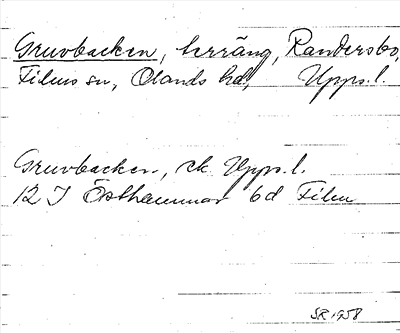 Gruvbacken, terräng, Randersbo,
Films sn, Olands hd, Upps.l.
Gruvbacken, ek. Upps.l.
12 I Östhammar 6d Film
SR 1958